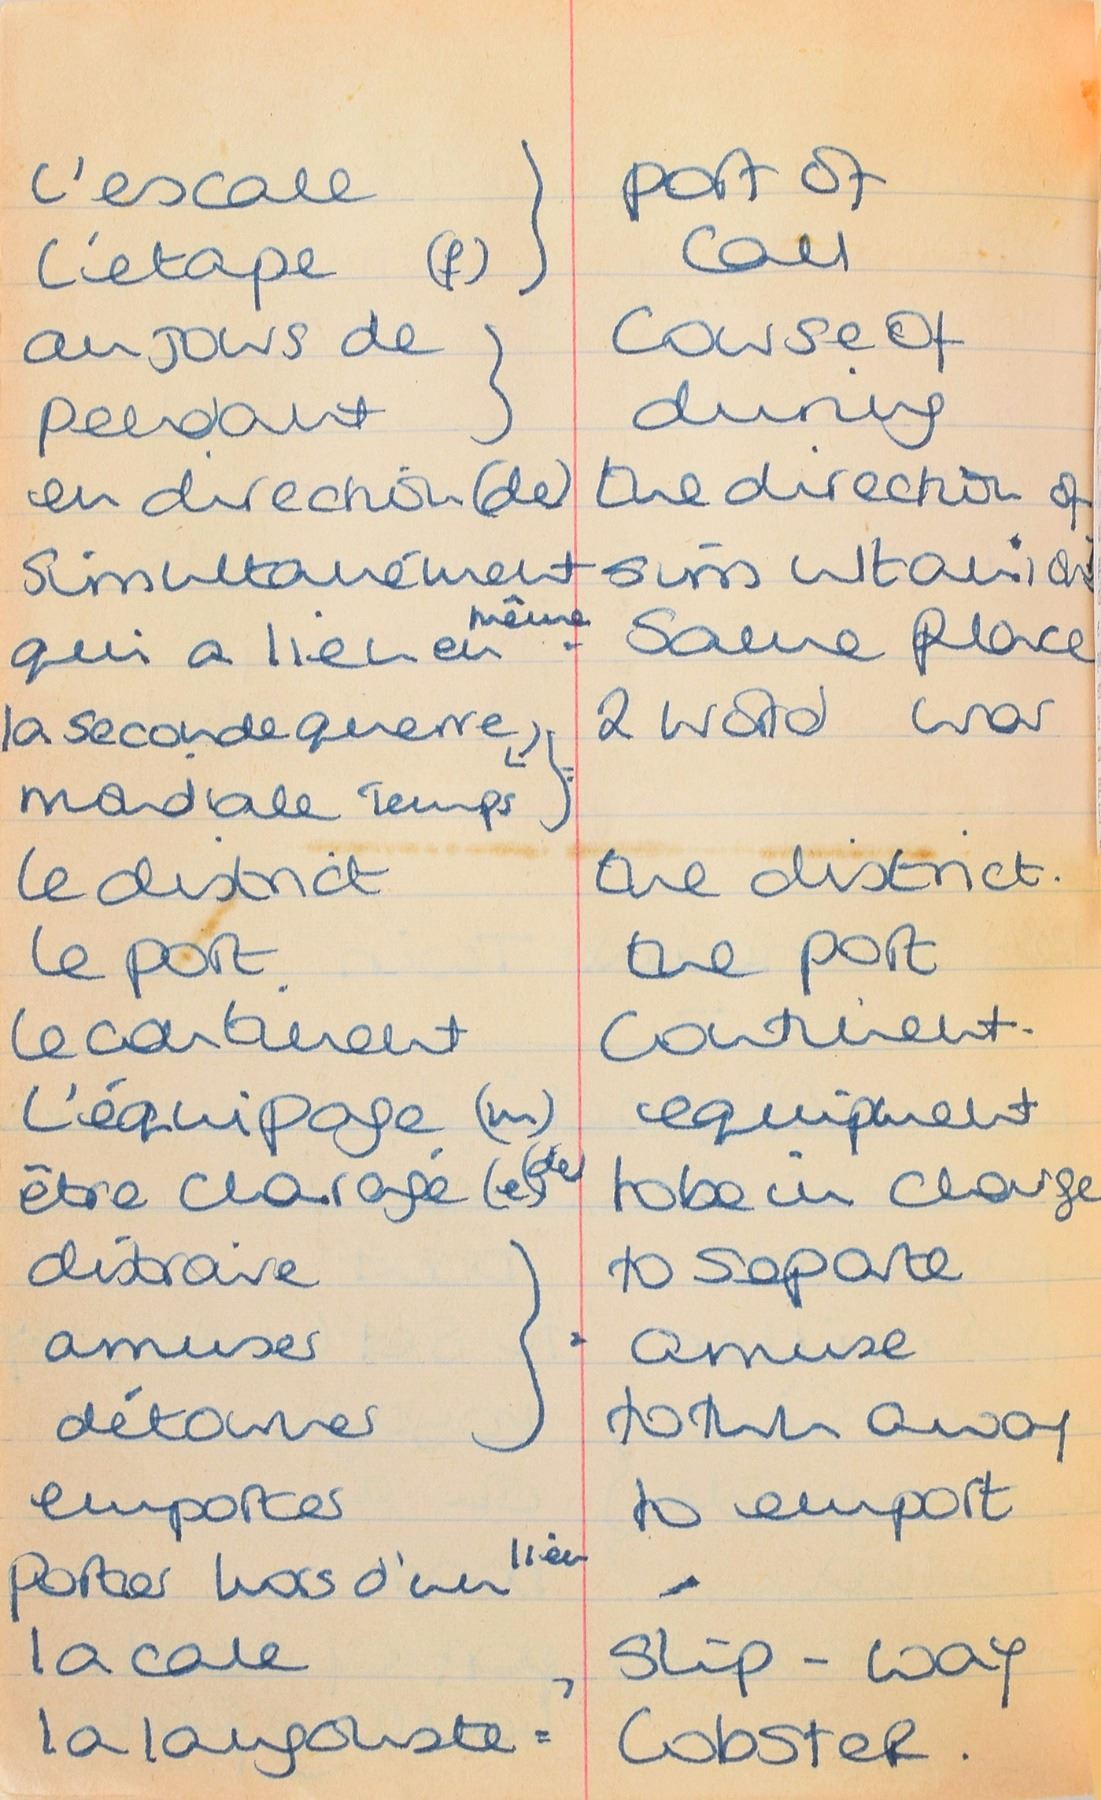 l'escale } port of
L'étape (f) } Call
au jours de } Course of
pendant } during
en direction (de) the direction of
simultanément simultani
qui a lieu en même - Same place
la seconde guerre, 2 World war
mondiale Temps } =
le district the district.
le port the port
le continent Continent.
L'équipage (m) equipment
être charagé (e) (de) to be in charge
distraire to separte
amuser } = amuse
détourner to turn away
emporter to emport
Porter hors d'un lieu -
la cale slip - way
la langouste = Lobster.